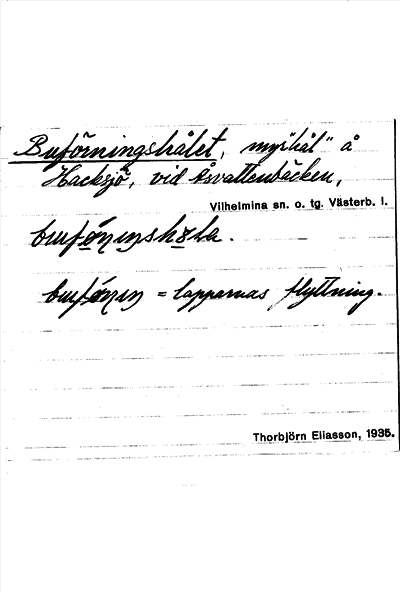 Buförningshålet, myr"hål" å
Hacksjö, vid Åsvattenbäcken,
Vilhelmina sn. o. tg. Västerb. l.
= lapparnas flyttning.
Thorbjörn Eliasson, 1935.